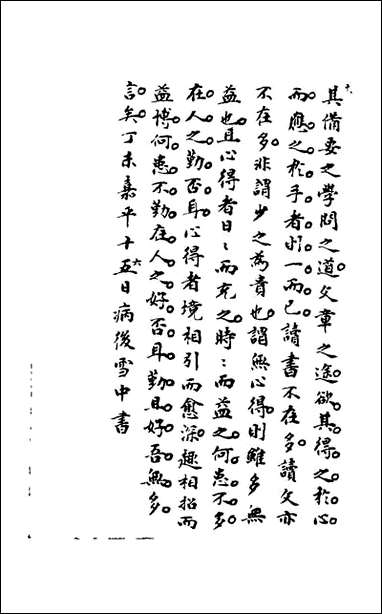 其備要之學問之道文章之途欲其得之於心
而應之於手者則一而已讀書不在多讀文亦
不在多非謂少之為貴也謂無心得則雖多無
益也且心得者日〻而充之時〻而益之何患不多
在人之勤否耳心得者境相引而愈深趣相招而
益博何患不勤在人之好否耳勤且好吾無多
言矣丁未嘉平十五日病後雪中書